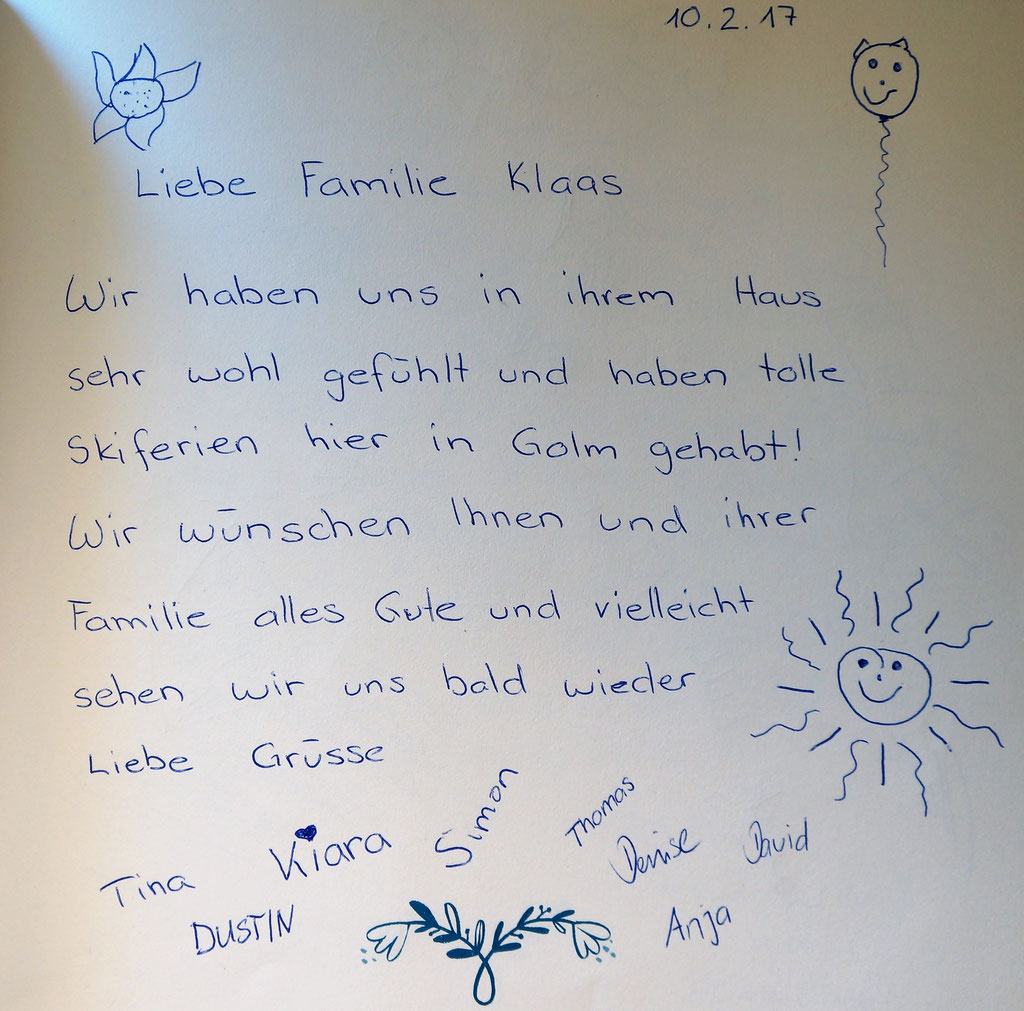 10.2.17
Liebe Familie Klaas
Wir haben uns in ihrem Haus
sehr wohl gefühlt und haben tolle
Skiferien hier in Golm gehabt!
Wir wünschen Ihnen und ihrer
Familie alles Gute und vielleicht
sehen wir uns bald wieder
Liebe Grüsse
Tina Kiara Simon Thomas Denise David
DUSTIN Anja